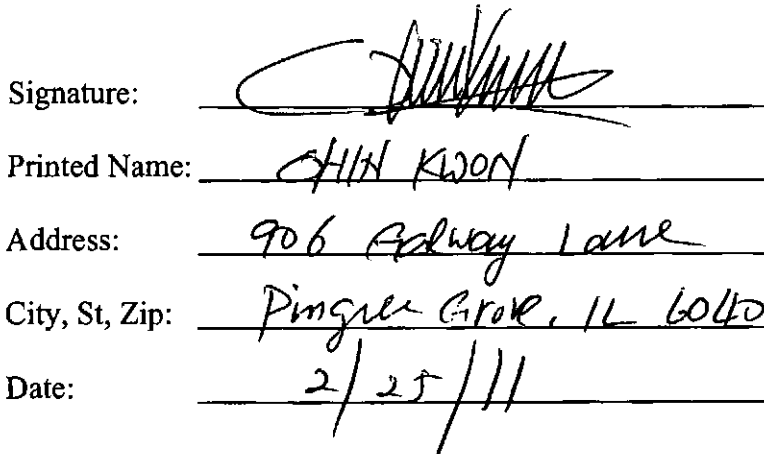 Signature:
Printed Name: CHIN KWON
Address: 906 Galway Lane
City, St, Zip: Pingree Grove, IL 6040
Date: 2/25/11